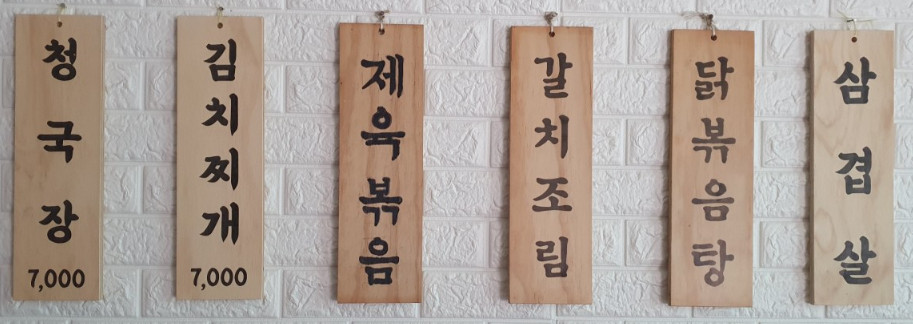 청국장
7,000
김치찌개
7,000
제육볶음
갈치조림
닭볶음탕
삼겹살